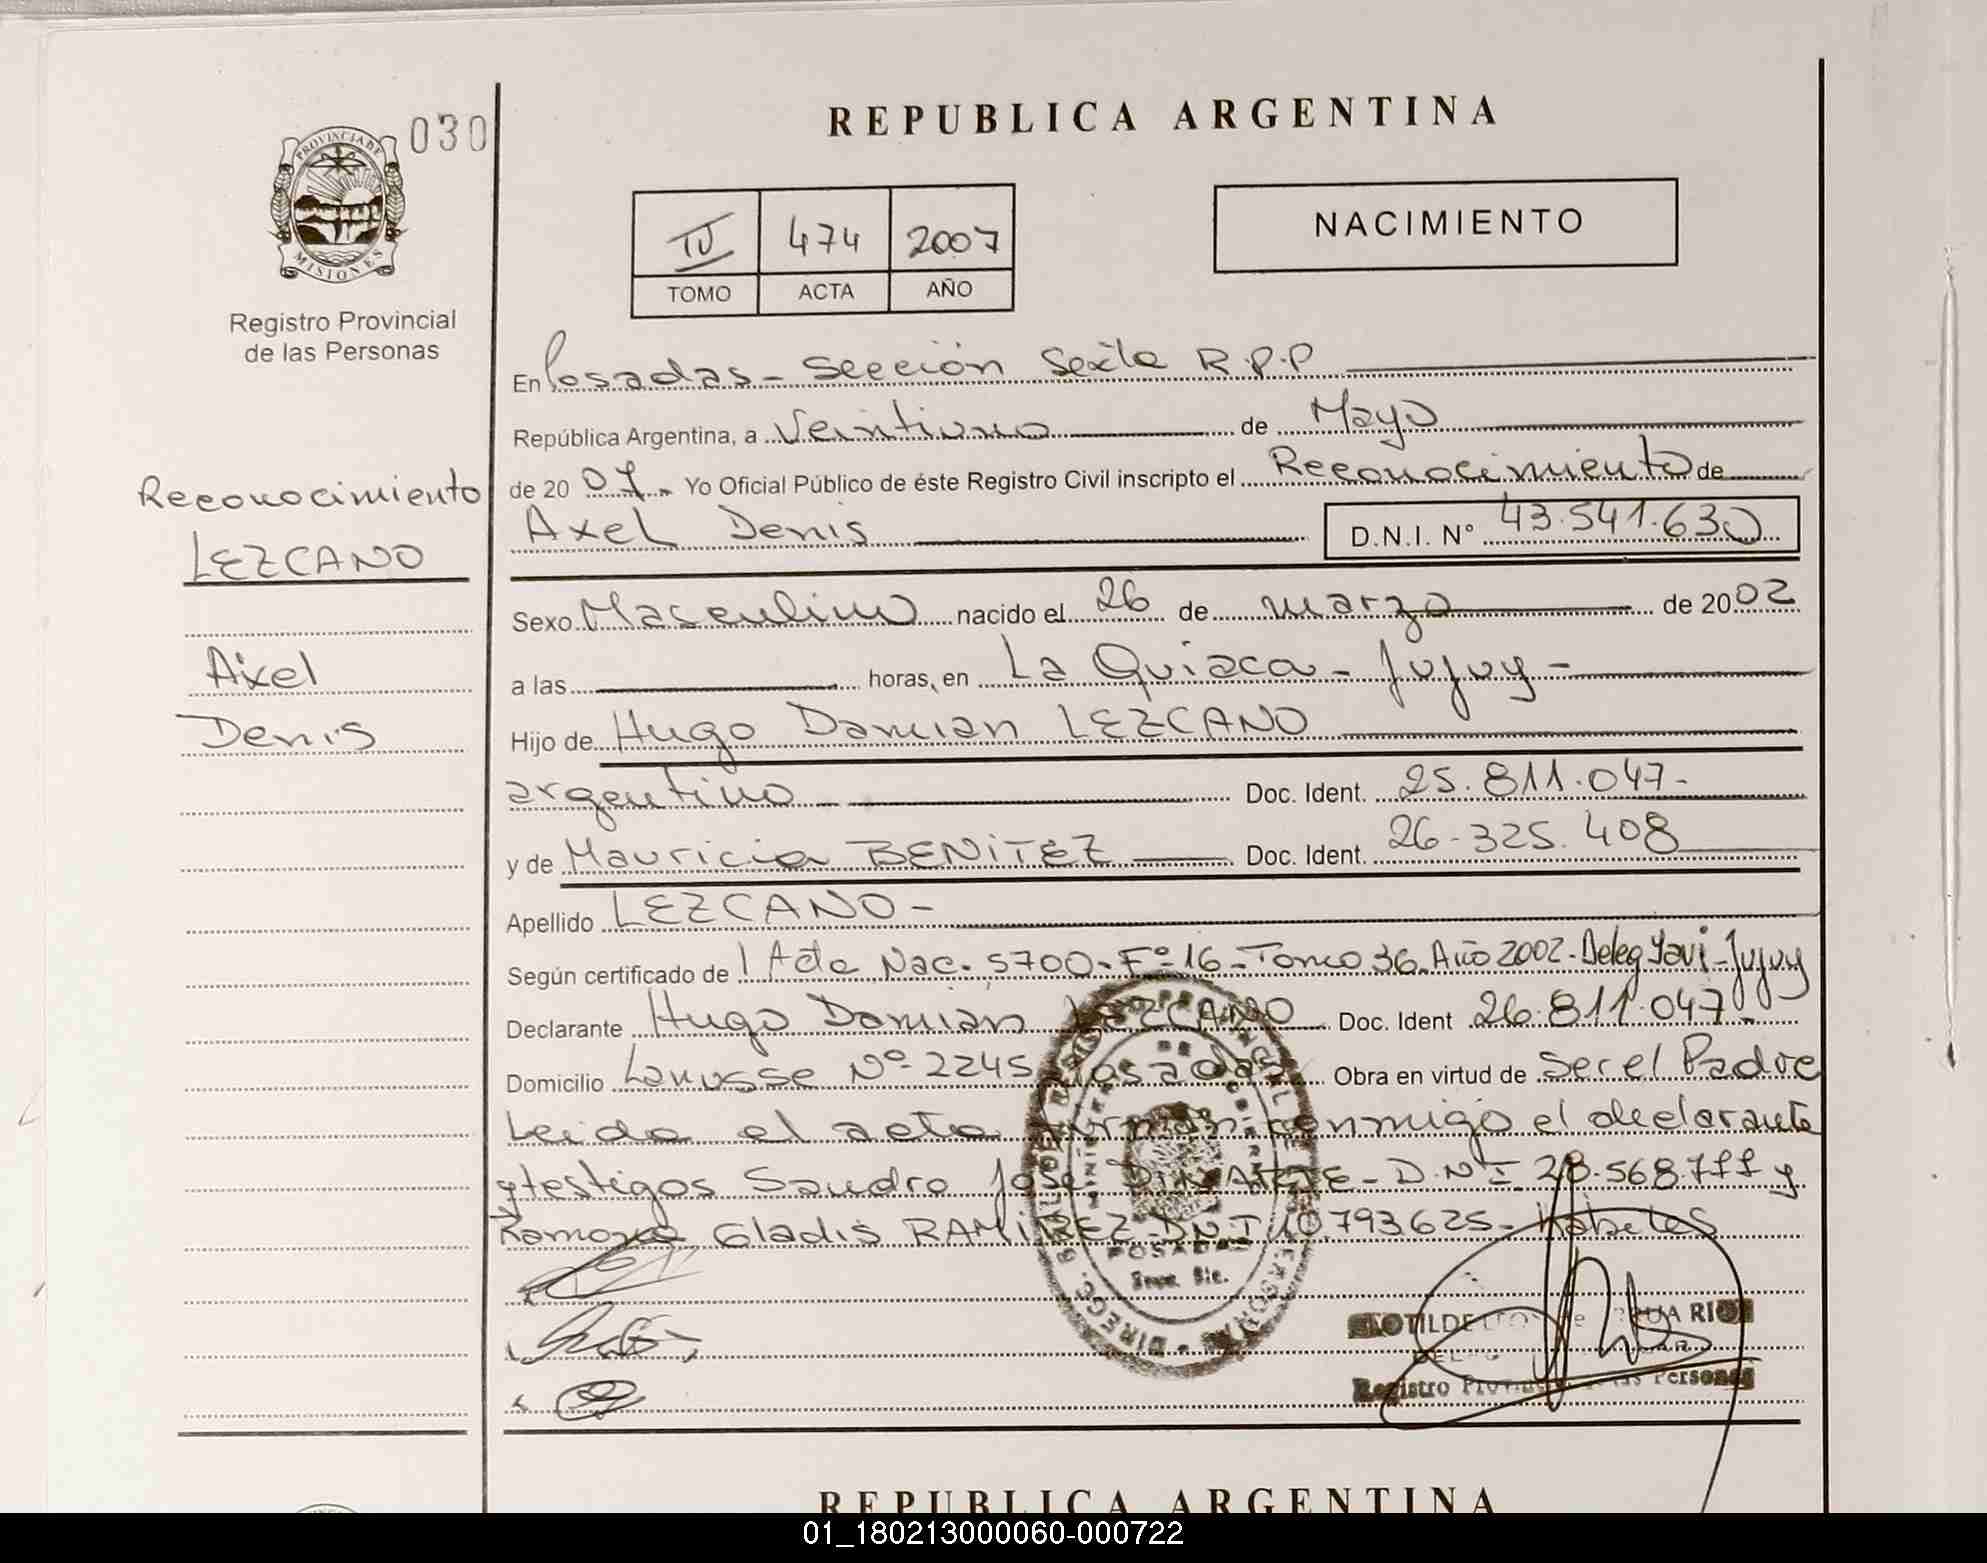 REPUBLICA ARGENTINA
030
PROVINCIA DE
MISIONES
Registro Provincial
de las Personas
IV 474 2007
TOMO ACTA AÑO
NACIMIENTO
Reconocimiento
LEZCANO
Axel
Denis
En Posadas - Sección Sexta R.P.P
República Argentina, a Veintiuno de Mayo
de 20 07 Yo Oficial Público de éste Registro Civil inscripto el Reconocimiento de
Axel Denis D.N.I. N° 43.541.630
Sexo Masculino nacido el 26 de marzo de 20 02
a las horas, en La Quiaca - Jujuy -
Hijo de Hugo Damian LEZCANO
argentino Doc. Ident. 25.811.047-
y de Mauricia BENITEZ Doc. Ident. 26-325.408
Apellido LEZCANO -
Según certificado de Acta Nac. 5700 - Fº 16 - Tomo 36 Año 2002 - Deleg Yavi - Jujuy
Declarante Hugo Damian LEZCANO Doc. Ident 26.811.047-
Domicilio Lanusse Nº 2245 Posadas Obra en virtud de Ser el Padre
Leida el acta firman conmigo el declarante
y testigos Sandro José D.N.I 28.568.777 y
Ramona Gladis RAMIREZ DNI 10.793625 - Habiles
POSADAS
Registro Provincial de las Personas
REPUBLICA ARGENTINA
01_180213000060-000722